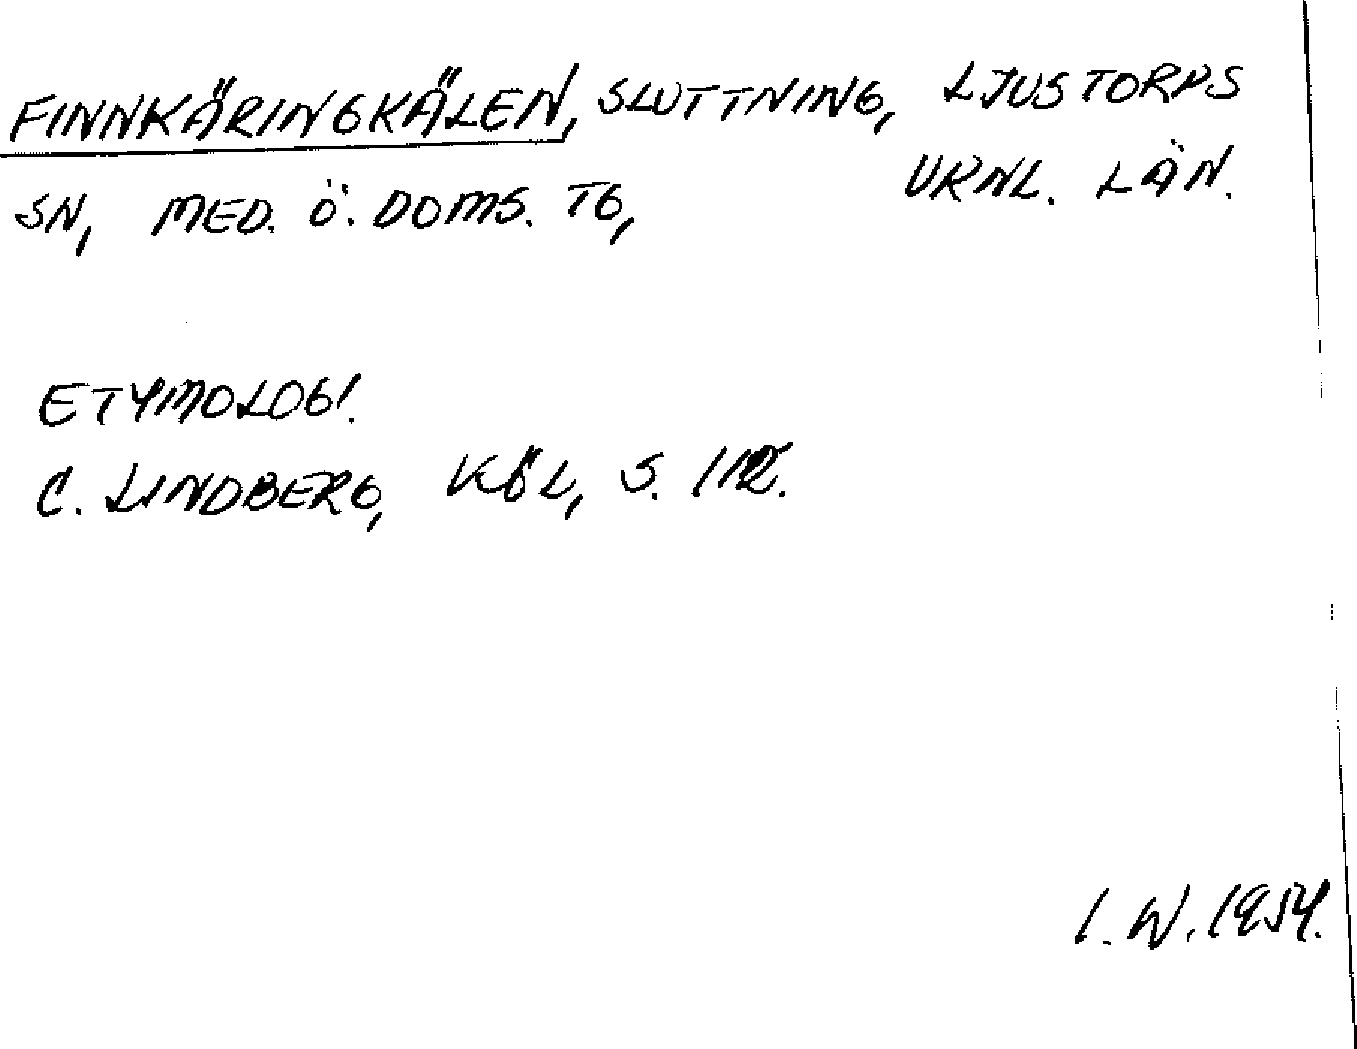 FINNKÄRINGKÄLEN, SLUTTNING, LJUSTORPS
SN, MED. Ö. DOMS. TG, VRNL. LÄN.
ETYMOLOGI.
C. LINDBERG, KÖL, S. 112.
I. W. 1954.